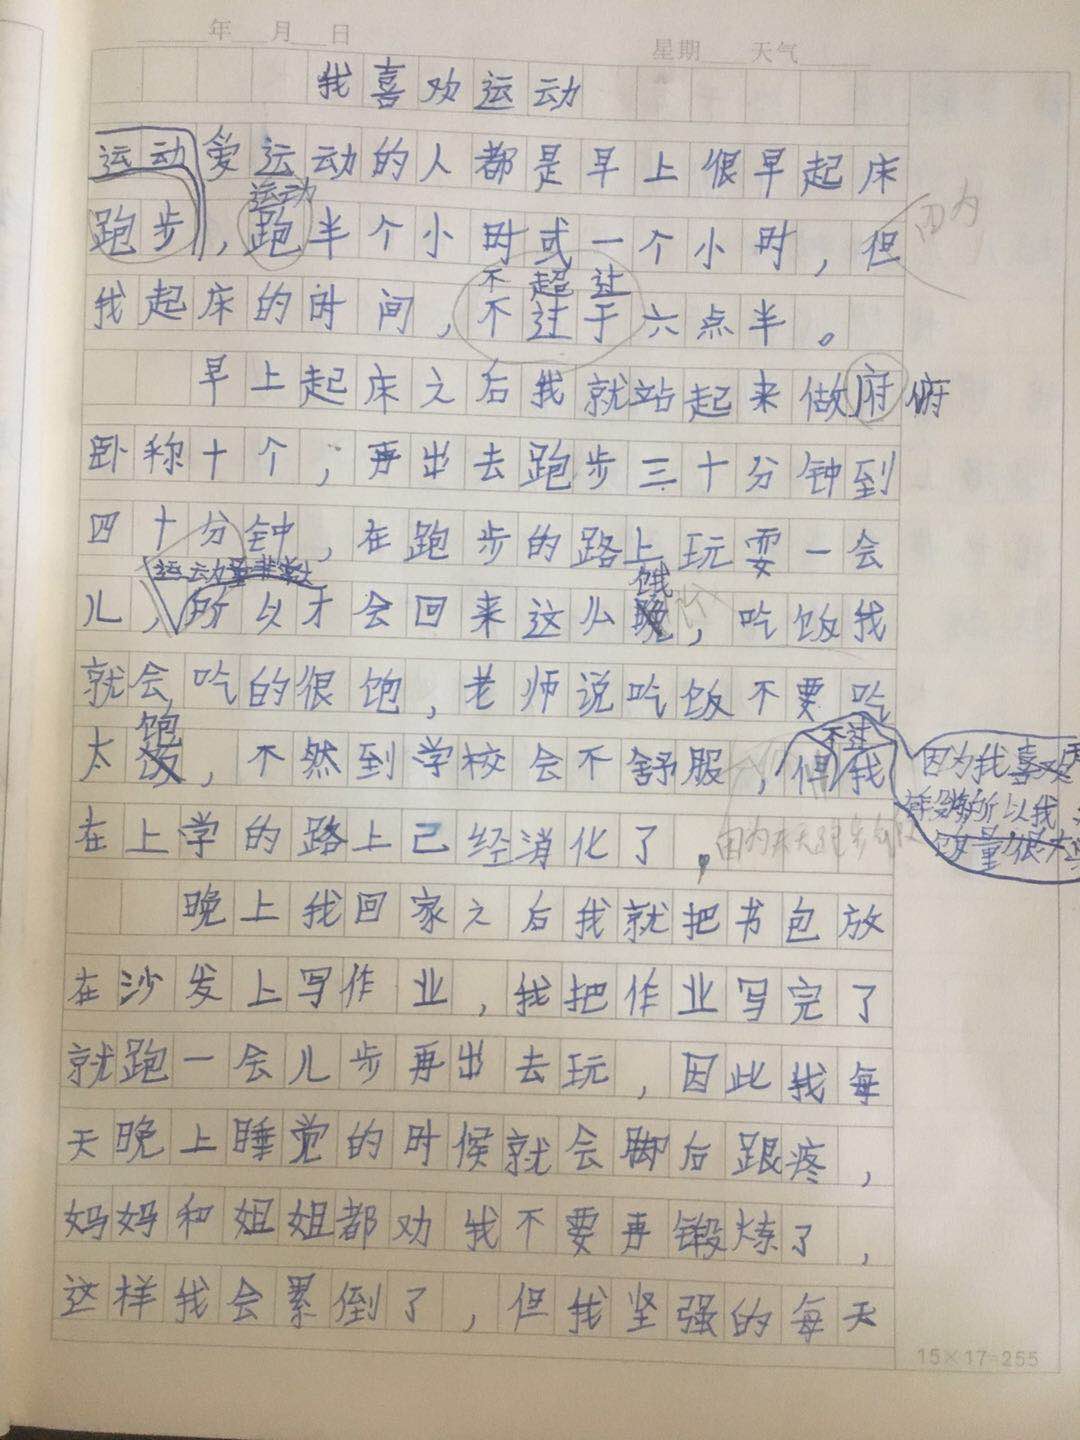 年 月 日
星期 天气
我喜欢运动
运动爱运动的人都是早上很早起床
运动
因为
跑步，跑半个小时或一个小时，但
不超过
我起床的时间，不过于六点半。
早上起床之后我就站起来做府俯
卧称十个，再出去跑步三十分钟到
四十分钟，在跑步的路上玩耍一会
运动量非常大
饿
儿，所以才会回来这么晚，吃饭我
就会吃的很饱，老师说吃饭不要吃
饱
不过
太饭，不然到学校会不舒服，但我
因为我喜欢
所以我
饭量很大
在上学的路上已经消化了，
晚上我回家之后我就把书包放
在沙发上写作业，我把作业写完了
就跑一会儿步再出去玩，因此我每
天晚上睡觉的时候就会脚后跟疼，
妈妈和姐姐都劝我不要再锻炼了，
这样我会累倒了，但我坚强的每天
15×17=255